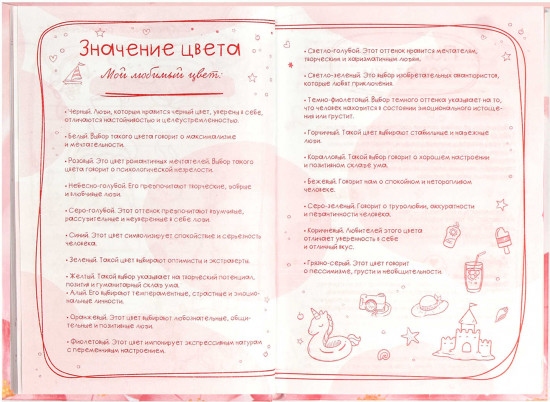 Значение цвета
Мой любимый цвет:
• Черный. Люди, которым нравится черный цвет, уверены в себе,
отличаются настойчивостью и целеустремленностью.
• Белый. Выбор такого цвета говорит о максимализме
и мечтательности.
• Розовый. Это цвет романтичных мечтателей. Выбор такого
цвета говорит о психологической незрелости.
• Небесно-голубой. Его предпочитают творческие, добрые
и влюбчивые люди.
• Серо-голубой. Этот оттенок предпочитают разумные,
рассудительные и неуверенные в себе люди.
• Синий. Этот цвет символизирует спокойствие и серьезность
человека.
• Зеленый. Такой цвет выбирают оптимисты и экстраверты.
• Желтый. Такой выбор указывает на творческий потенциал,
позитив и гуманитарный склад ума.
• Алый. Его выбирают темпераментные, страстные и эмоцио-
нальные личности.
• Оранжевый. Этот цвет выбирают любознательные, общи-
тельные и позитивные люди.
• Фиолетовый. Этот цвет импонирует экспрессивным натурам
с переменным настроением.
• Светло-голубой. Этот оттенок нравится мечтателям,
творческим и харизматичным людям.
• Светло-зеленый. Это выбор изобретательных авантюристов,
которые любят приключения.
• Темно-фиолетовый. Выбор темного оттенка указывает на то,
что человек находится в состоянии эмоционального истоще-
ния или грустит.
• Горчичный. Такой цвет выбирают стабильные и надежные
люди.
• Коралловый. Такой выбор говорит о хорошем настроении
и позитивном складе ума.
• Бежевый. Говорит нам о спокойном и неторопливом
человеке.
• Серо-зеленый. Говорит о трудолюбии, аккуратности
и педантичности человека.
• Коричневый. Любителей этого цвета
отличает уверенность в себе
и отличный вкус.
• Грязно-серый. Этот цвет говорит
о пессимизме, грусти и необщительности.